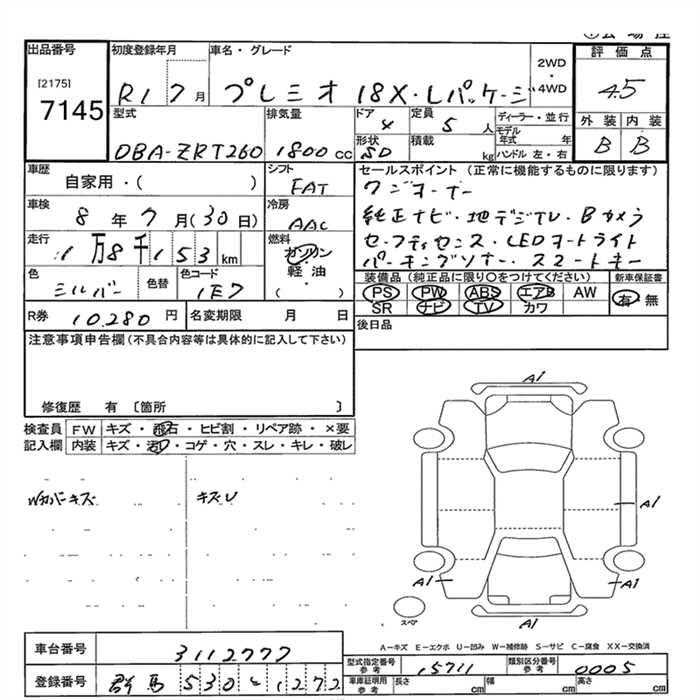 出品番号
[2175]
7145
初度登録年月
R1 7月
車名・グレード
プレミオ 18X・Lパッケージ
2WD
・
4WD
評価点
4.5
外装 内装
B B
型式
DBA-ZRT260
排気量
1800 cc
ドア
4
形状
SD
定員
5 人
積載
kg
ディーラー・並行
モデル年式 年
ハンドル 左・右
車歴
自家用・( )
車検
8年7月(30日)
走行
1万8千153km
色
シルバー
色替
色コード
1E7
シフト
FAT
冷房
AAC
燃料
ガソリン
・
軽油
( )
セールスポイント(正常に機能するものに限ります)
ワンオーナー
純正ナビ・地デジTV・Bカメラ
セーフティセンス・LEDオートライト
パーキングソナー・スマートキー
装備品(純正品に限り○をつけてください)
PS PW ABS エアB AW
SR ナビ TV カワ
新車保証書
有・無
R券 10,280 円
名変期限 月 日
後日品
注意事項申告欄(不具合内容等は具体的に記入して下さい)
修復歴 有 〔箇所 〕
検査員 FW キズ・飛石・ヒビ割・リペア跡・×要
記入欄 内装 キズ・汚れ・コゲ・穴・スレ・キレ・破レ
Wカバーキズ
キズU
A1
A1
A1
A1
スペア
A-キズ E-エクボ U-凹み W-補修跡 S-サビ C-腐食 XX-交換済
車台番号 3112777
登録番号 群馬 530 と 1272
型式指定番号
参考
15711
類別区分番号
参考
0005
車庫証明用
参考
長さ cm 幅 cm 高さ cm